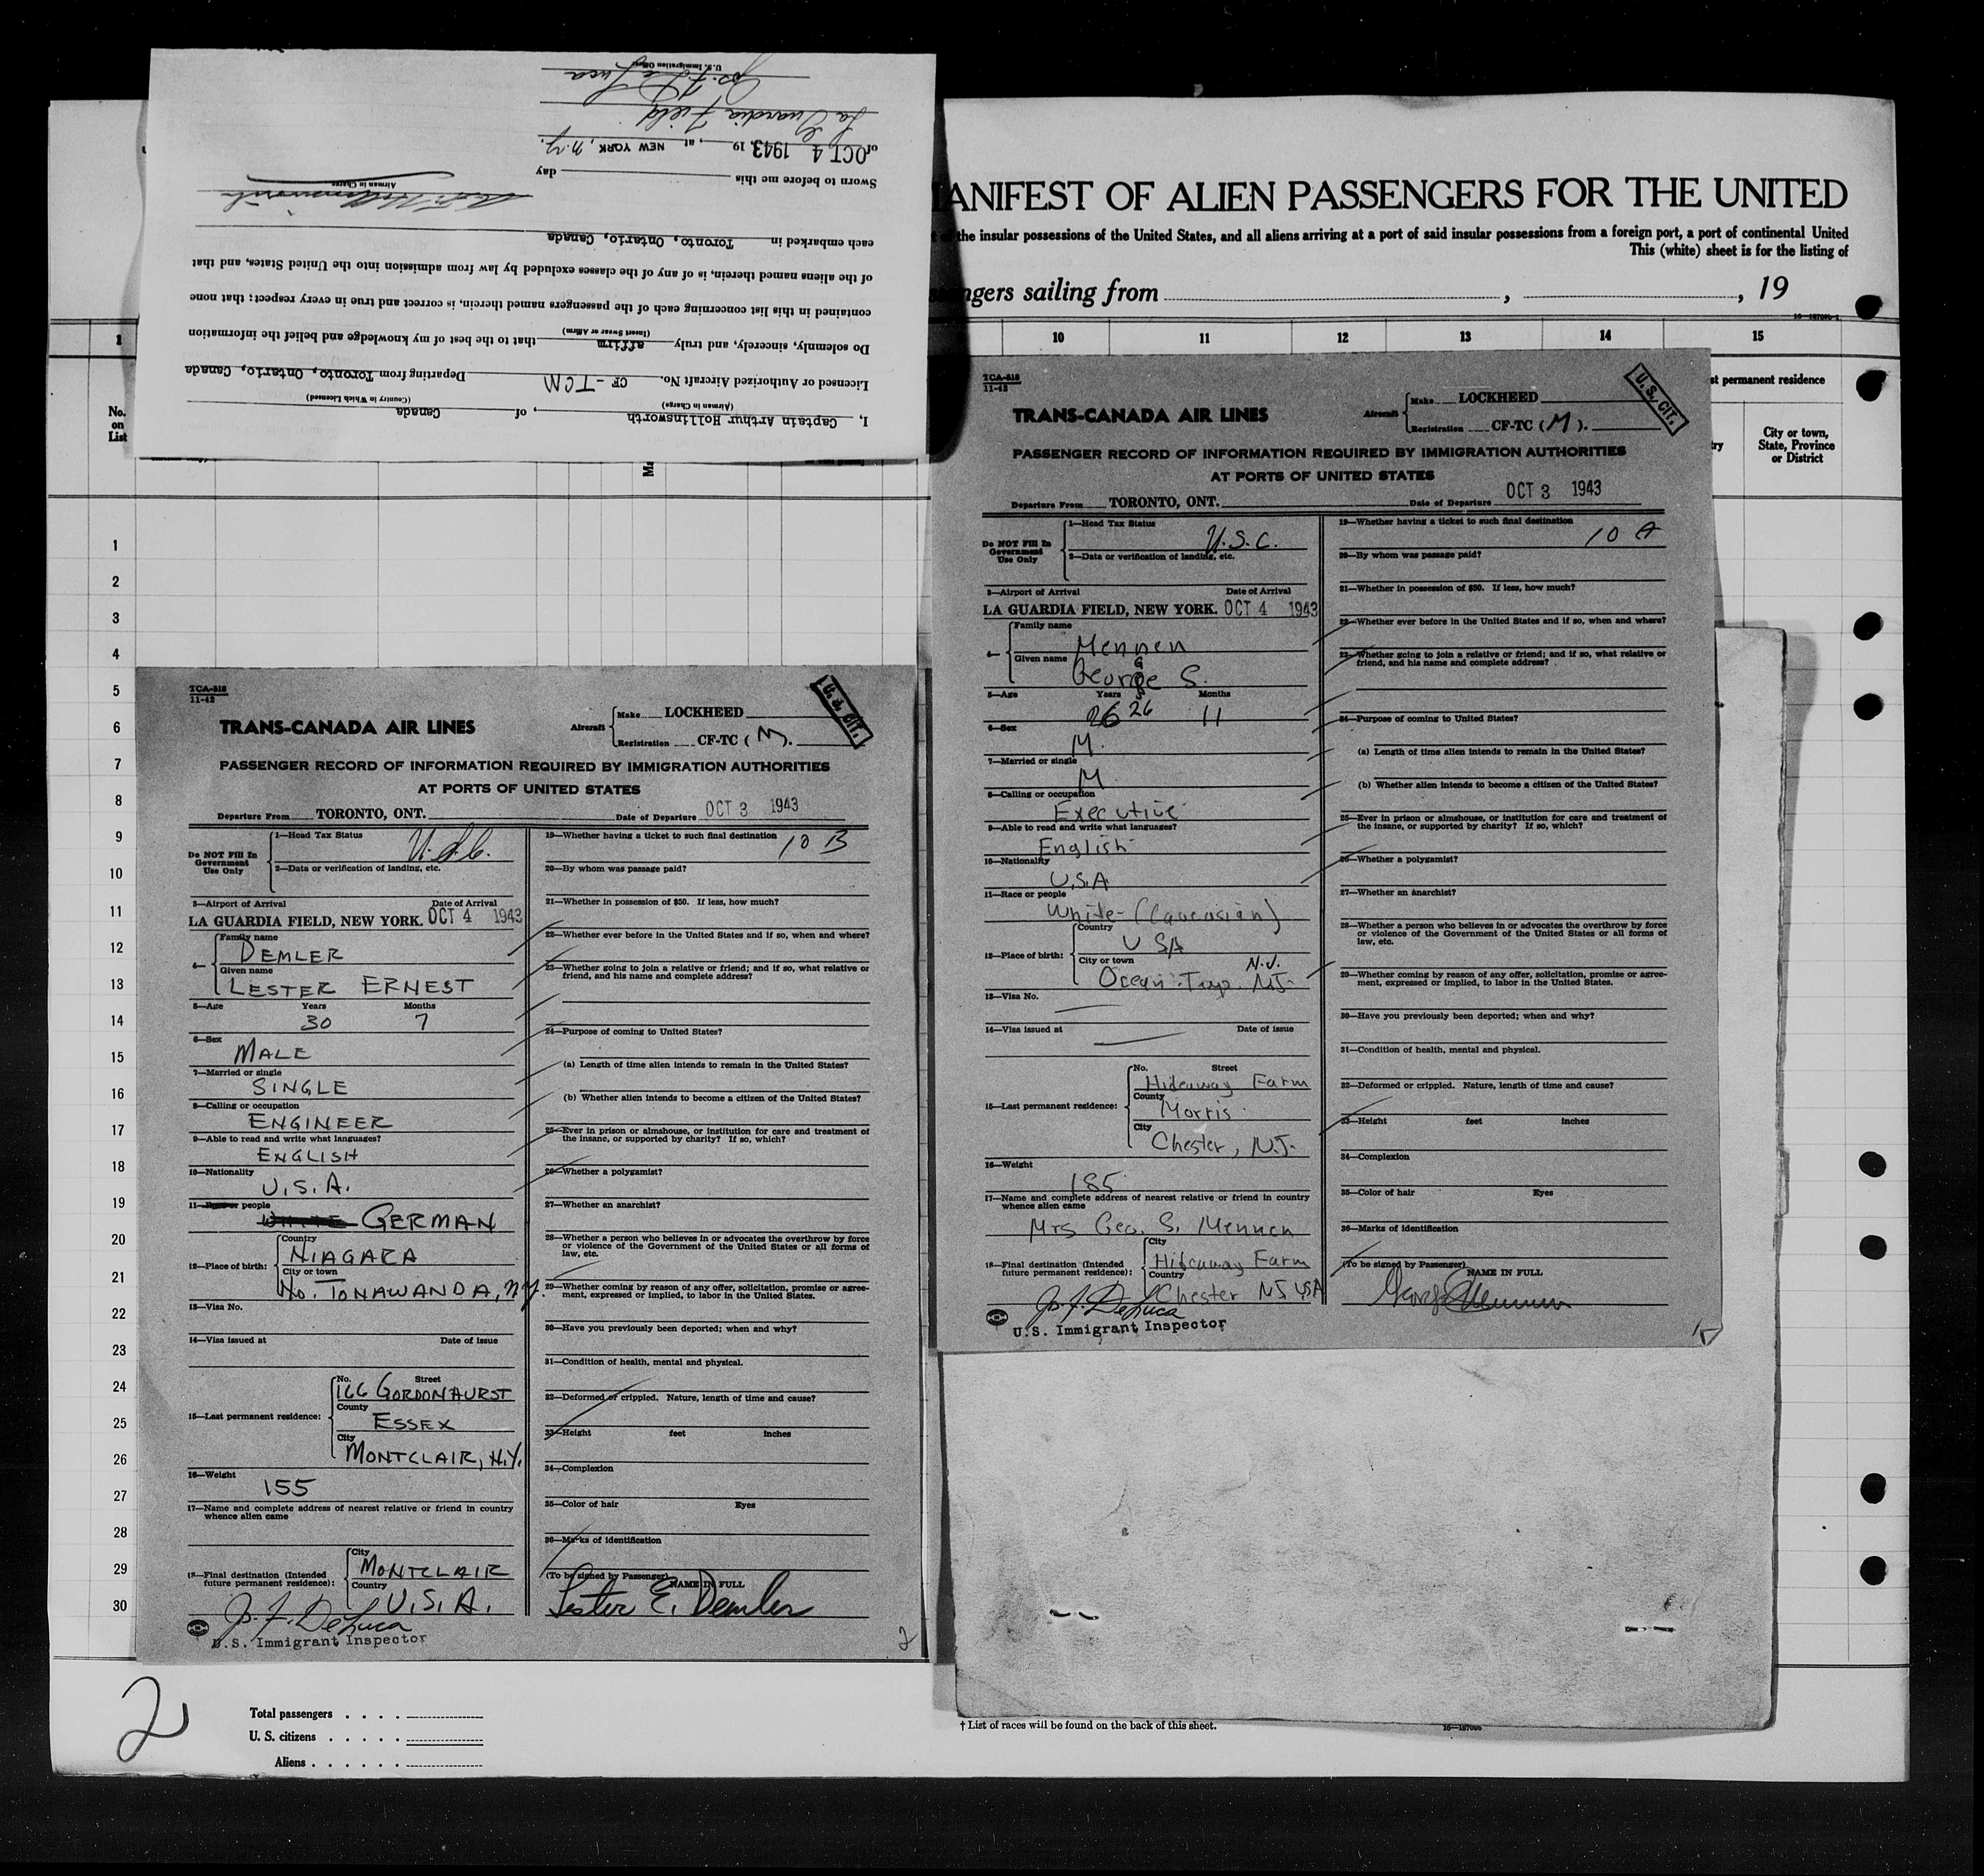 I, Captain Arthur Hollinsworth, of Canada
(Airman in Charge) (Country in Which Licensed)
Licensed or Authorized Aircraft No. CF-TCM Departing from Toronto, Ontario, Canada
Do solemnly, sincerely, and truly affirm that to the best of my knowledge and belief the information
(Insert Swear or Affirm)
contained in this list concerning each of the passengers named therein, is correct and true in every respect; that none
of the aliens named therein, is of any of the classes excluded by law from admission into the United States, and that
each embarked in Toronto, Ontario, Canada
Airman in Charge
Sworn to before me this day
of OCT 4 1943, 19 , at NEW YORK, N.Y.
La Guardia Field
Jos. F. DeLuca
U.S. Immigration Officer
ANIFEST OF ALIEN PASSENGERS FOR THE UNITED
the insular possessions of the United States, and all aliens arriving at a port of said insular possessions from a foreign port, a port of continental United
This (white) sheet is for the listing of
ngers sailing from , , 19
1 10 11 12 13 14 15
No.
on
List
st permanent residence
ry
City or town,
State, Province
or District
Ma
1
2
3
4
5
6
7
8
9
10
11
12
13
14
15
16
17
18
19
20
21
22
23
24
25
26
27
28
29
30
TCA-518
11-42
U.S. CIT.
TRANS-CANADA AIR LINES
Aircraft Make LOCKHEED
Registration CF-TC (M).
PASSENGER RECORD OF INFORMATION REQUIRED BY IMMIGRATION AUTHORITIES
AT PORTS OF UNITED STATES
Departure From TORONTO, ONT. Date of Departure OCT 3 1943
Do NOT Fill In
Government
Use Only
1—Head Tax Status U.S.C.
2—Data or verification of landing, etc.
3—Airport of Arrival Date of Arrival
LA GUARDIA FIELD, NEW YORK. OCT 4 1943
4— Family name
DEMLER
Given name
LESTER ERNEST
5—Age Years Months
30 7
6—Sex
MALE
7—Married or single
SINGLE
8—Calling or occupation
ENGINEER
9—Able to read and write what languages?
ENGLISH
10—Nationality
U.S.A.
11—Race or people
WHITE GERMAN
12—Place of birth: Country
NIAGARA
City or town
No. TONAWANDA, N.Y.
13—Visa No.
14—Visa issued at Date of issue
15—Last permanent residence:
No. Street
166 GORDONHURST
County
ESSEX
City
MONTCLAIR, N.Y.
16—Weight
155
17—Name and complete address of nearest relative or friend in country
whence alien came
18—Final destination (Intended
future permanent residence):
City
MONTCLAIR
Country
U.S.A.
Jos. F. DeLuca
U.S. Immigrant Inspector
19—Whether having a ticket to such final destination
10 B
20—By whom was passage paid?
21—Whether in possession of $50. If less, how much?
22—Whether ever before in the United States and if so, when and where?
23—Whether going to join a relative or friend; and if so, what relative or
friend, and his name and complete address?
24—Purpose of coming to United States?
(a) Length of time alien intends to remain in the United States?
(b) Whether alien intends to become a citizen of the United States?
25—Ever in prison or almshouse, or institution for care and treatment of
the insane, or supported by charity? If so, which?
26—Whether a polygamist?
27—Whether an anarchist?
28—Whether a person who believes in or advocates the overthrow by force
or violence of the Government of the United States or all forms of
law, etc.
29—Whether coming by reason of any offer, solicitation, promise or agree-
ment, expressed or implied, to labor in the United States.
30—Have you previously been deported; when and why?
31—Condition of health, mental and physical.
32—Deformed or crippled. Nature, length of time and cause?
33—Height feet inches
34—Complexion
35—Color of hair Eyes
36—Marks of identification
(To be signed by Passenger) NAME IN FULL
Lester E. Demler
2
TCA-518
11-42
U.S. CIT.
TRANS-CANADA AIR LINES
Aircraft Make LOCKHEED
Registration CF-TC (M).
PASSENGER RECORD OF INFORMATION REQUIRED BY IMMIGRATION AUTHORITIES
AT PORTS OF UNITED STATES
Departure From TORONTO, ONT. Date of Departure OCT 3 1943
Do NOT Fill In
Government
Use Only
1—Head Tax Status
U.S.C.
2—Data or verification of landing, etc.
3—Airport of Arrival Date of Arrival
LA GUARDIA FIELD, NEW YORK. OCT 4 1943
4— Family name
Mennen
Given name
George S.
5—Age Years Months
26 26 11
6—Sex
M.
7—Married or single
M
8—Calling or occupation
Executive
9—Able to read and write what languages?
English
10—Nationality
U.S.A
11—Race or people
White (Caucasian)
12—Place of birth: Country
USA
City or town
N.J.
Ocean Twp. NJ
13—Visa No.
14—Visa issued at Date of issue
15—Last permanent residence:
No. Street
Hideaway Farm
County
Morris
City
Chester, N.J.
16—Weight
185
17—Name and complete address of nearest relative or friend in country
whence alien came
Mrs Geo. S. Mennen
18—Final destination (Intended
future permanent residence):
City
Hideaway Farm
Country
Chester NJ USA
Jos. F. DeLuca
U.S. Immigrant Inspector
19—Whether having a ticket to such final destination
10 A
20—By whom was passage paid?
21—Whether in possession of $50. If less, how much?
22—Whether ever before in the United States and if so, when and where?
23—Whether going to join a relative or friend; and if so, what relative or
friend, and his name and complete address?
24—Purpose of coming to United States?
(a) Length of time alien intends to remain in the United States?
(b) Whether alien intends to become a citizen of the United States?
25—Ever in prison or almshouse, or institution for care and treatment of
the insane, or supported by charity? If so, which?
26—Whether a polygamist?
27—Whether an anarchist?
28—Whether a person who believes in or advocates the overthrow by force
or violence of the Government of the United States or all forms of
law, etc.
29—Whether coming by reason of any offer, solicitation, promise or agree-
ment, expressed or implied, to labor in the United States.
30—Have you previously been deported; when and why?
31—Condition of health, mental and physical.
32—Deformed or crippled. Nature, length of time and cause?
33—Height feet inches
34—Complexion
35—Color of hair Eyes
36—Marks of identification
(To be signed by Passenger) NAME IN FULL
George S Mennen
2
Total passengers . . . .
U. S. citizens . . . . .
Aliens . . . . . .
† List of races will be found on the back of this sheet.